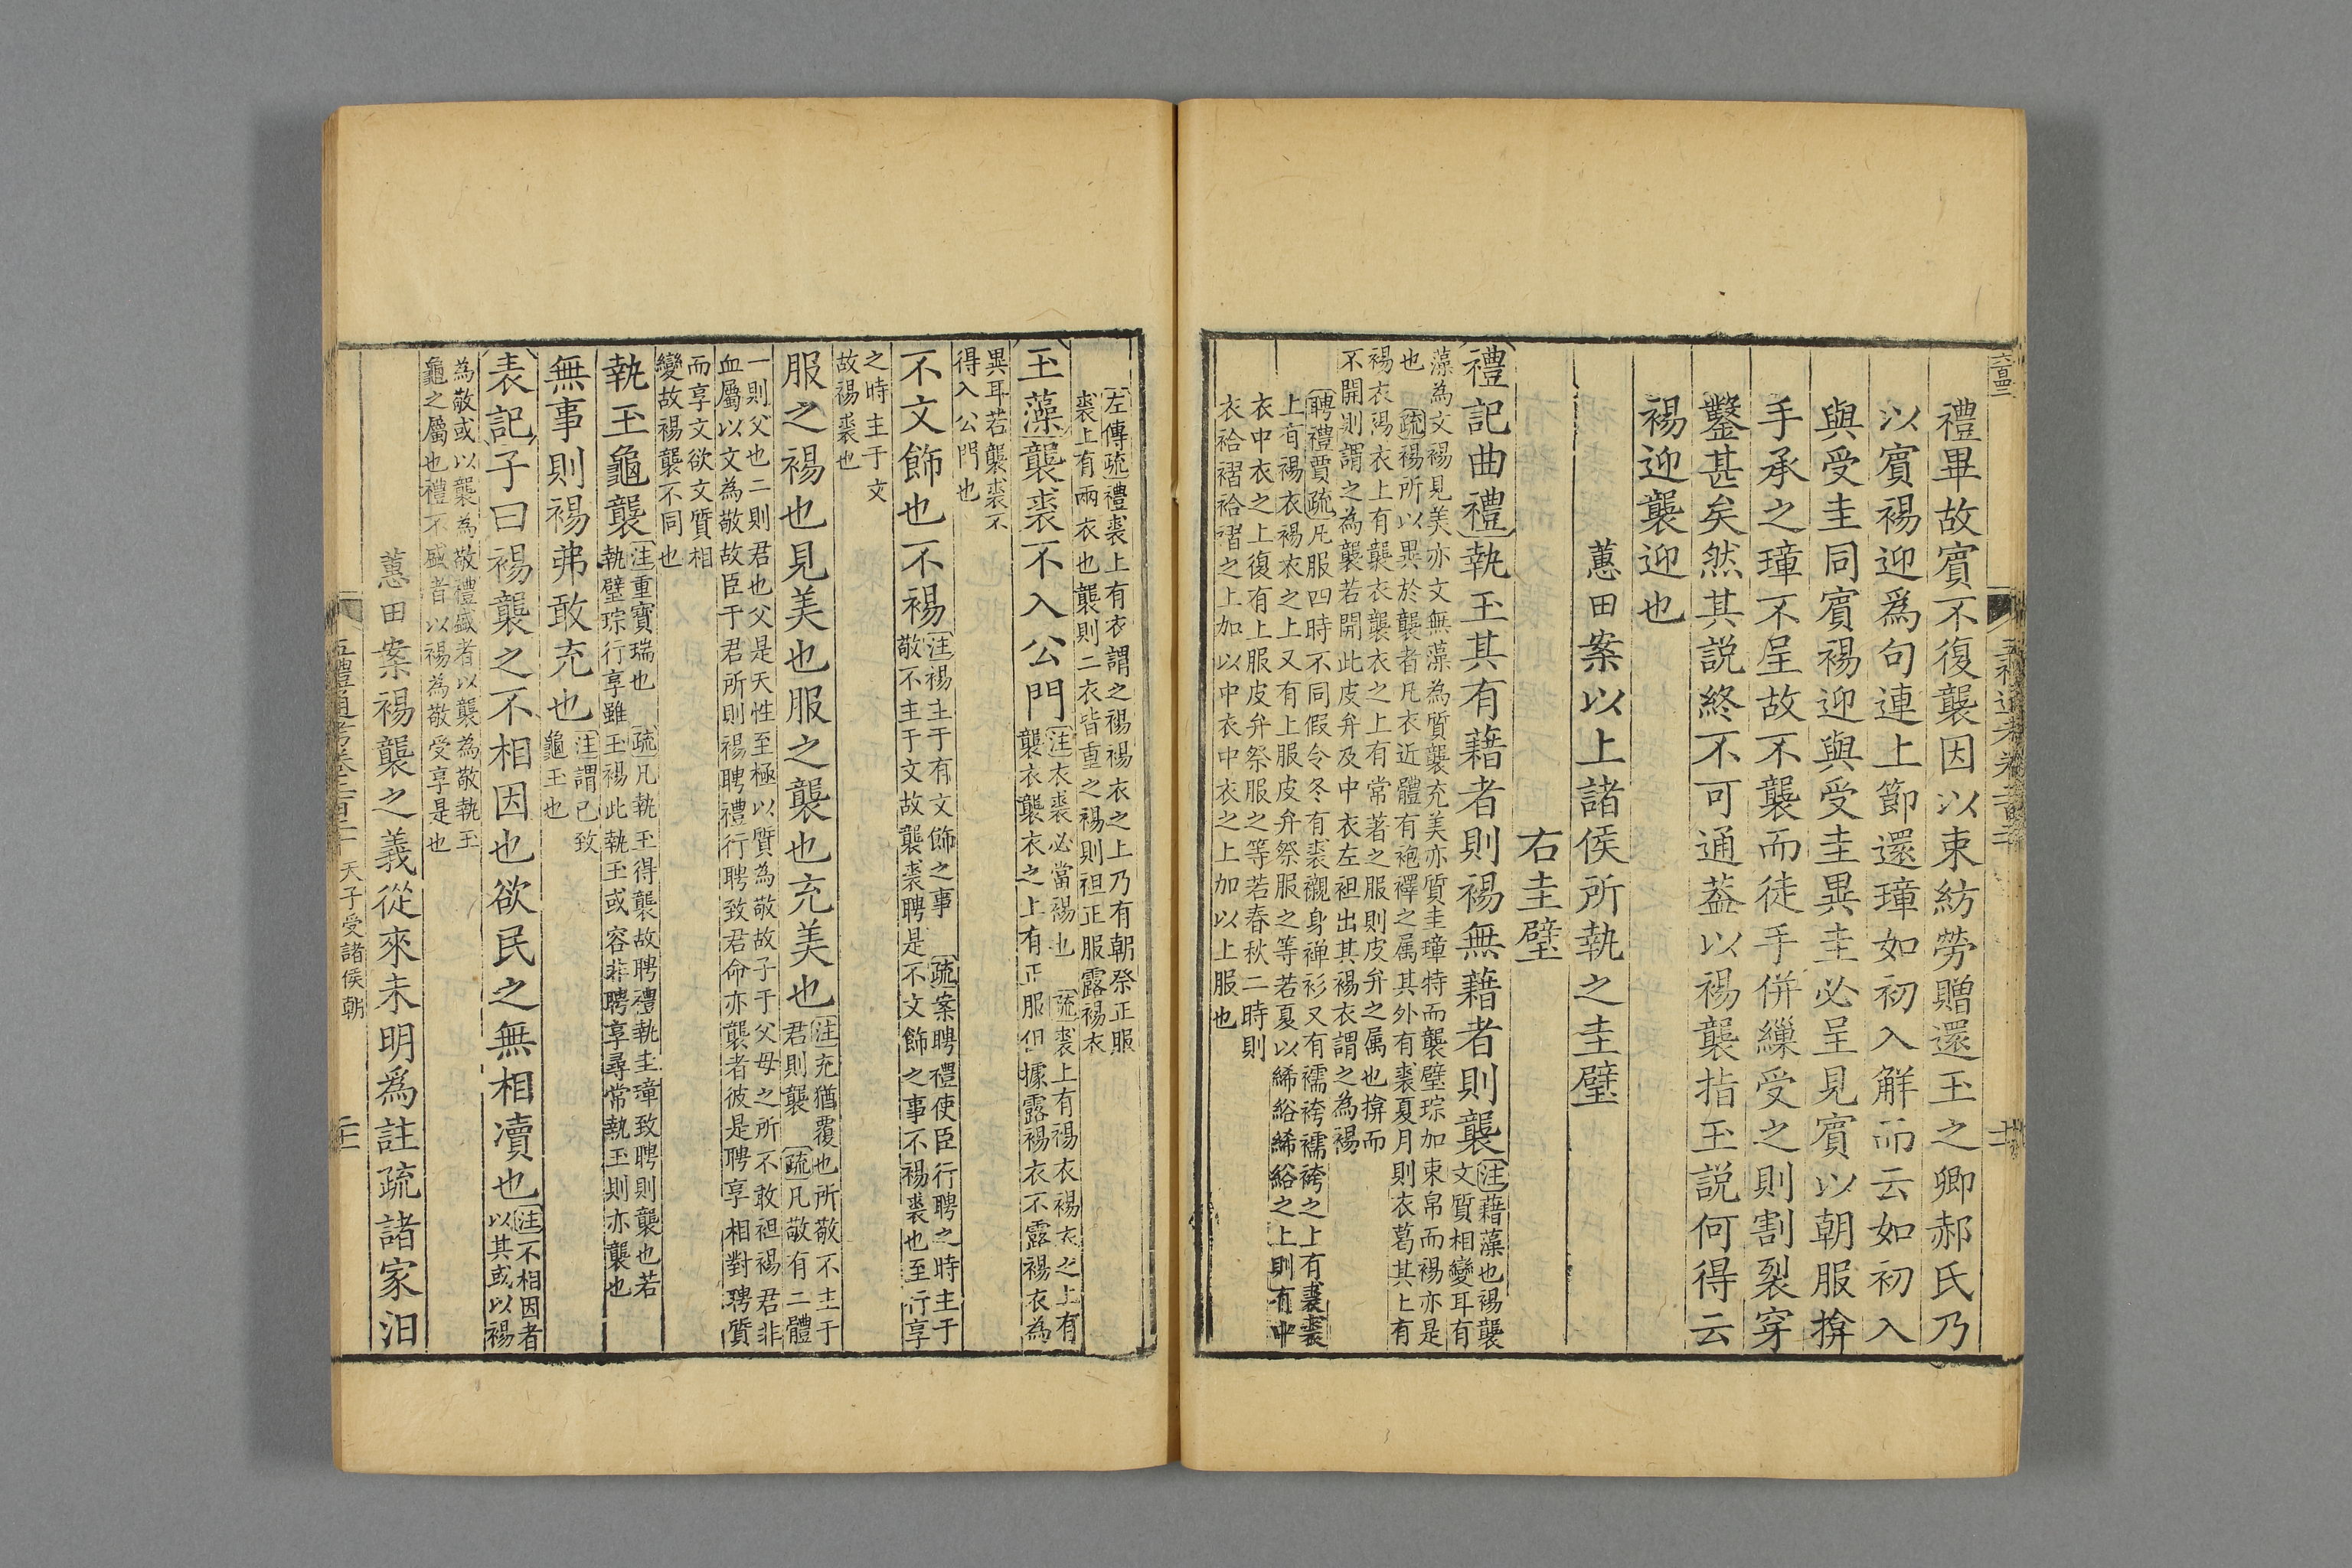 禮畢故賓不復襲因以束紡勞贈還玉之卿郝氏乃
以賓裼迎爲句連上節還璋如初入解而云如初入
與受圭同賓裼迎與受圭異圭必呈見賓以朝服揜
手承之璋不呈故不襲而徒手併繅受之則割裂穿
鑿甚矣然其説終不可通葢以裼襲指玉説何得云
裼迎襲迎也
蕙田案以上諸侯所執之圭璧
右圭璧
禮記曲禮執玉其有藉者則裼無藉者則襲
注藉藻也裼襲
文質相變耳有
藻為文裼見美亦文無藻為質襲充美亦質圭璋特而襲璧琮加束帛而裼亦是
也疏裼所以異於襲者凡衣近體有袍襗之属其外有裘夏月則衣葛其上有
裼衣裼衣上有襲衣襲衣之上有常著之服則皮弁之属也揜而
不開則謂之為襲若開此皮弁及中衣左袒出其裼衣謂之為裼
聘禮賈疏凡服四時不同假令冬有裘襯身禅衫又有襦袴襦袴之上有裘裘
上有裼衣裼衣之上又有上服皮弁祭服之等若夏以絺綌絺綌之上則有中
衣中衣之上復有上服皮弁祭服之等若春秋二時則
衣袷褶袷褶之上加以中衣中衣之上加以上服也
左傳疏禮裘上有衣謂之裼裼衣之上乃有朝祭正服
裘上有兩衣也襲則二衣皆重之裼則袒正服露裼衣
玉藻襲裘不入公門
注衣裘必當裼也疏裘上有裼衣裼衣之上有
襲衣襲衣之上有正服但據露裼衣不露裼衣為
異耳若襲裘不
得入公門也
不文飾也不裼
注裼主于有文飾之事疏案聘禮使臣行聘之時主于
敬不主于文故襲裘聘是不文飾之事不裼裘也至行享
之時主于文
故裼裘也
服之裼也見美也服之襲也充美也
注充猶覆也所敬不主于
君則襲疏凡敬有二體
一則父也二則君也父是天性至極以質為敬故子于父母之所不敢袒裼君非
血屬以文為敬故臣于君所則裼聘禮行聘致君命亦襲者彼是聘享相對聘質
而享文欲文質相
變故裼襲不同也
執玉龜襲
注重寶瑞也疏凡執玉得襲故聘禮執圭璋致聘則襲也若
執璧琮行享雖玉裼此執玉或容非聘享尋常執玉則亦襲也
無事則裼弗敢充也
注謂已致
龜玉也
表記子曰裼襲之不相因也欲民之無相瀆也
注不相因者
以其或以裼
為敬或以襲為敬禮盛者以襲為敬執玉
龜之屬也禮不盛者以裼為敬受享是也
蕙田案裼襲之義從來未明爲註疏諸家汨
天子受諸侯朝